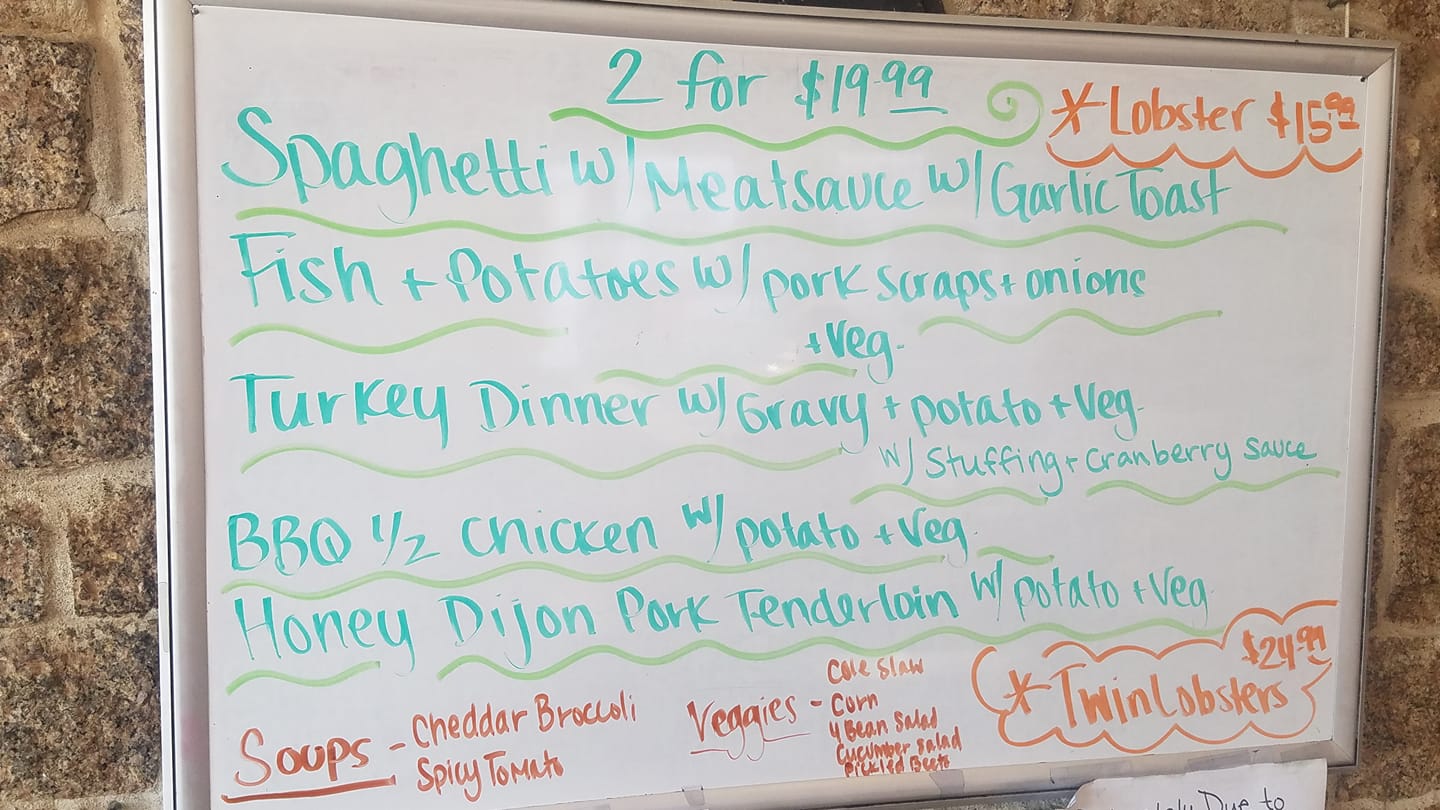 2 for $19.99
*Lobster $15.99
Spaghetti w/ Meatsauce w/ Garlic Toast
Fish + Potatoes w/ pork scraps + onions
+ Veg.
Turkey Dinner w/ Gravy + potato + Veg.
w/ Stuffing + Cranberry Sauce
BBQ 1/2 Chicken w/ potato + Veg.
Honey Dijon Pork Tenderloin w/ potato + Veg
Soups - Cheddar Broccoli
Spicy Tomato
Veggies - Cole Slaw
Corn
4 Bean Salad
Cucumber Salad
Pickled Beets
$24.99
*Twin Lobsters
Due to